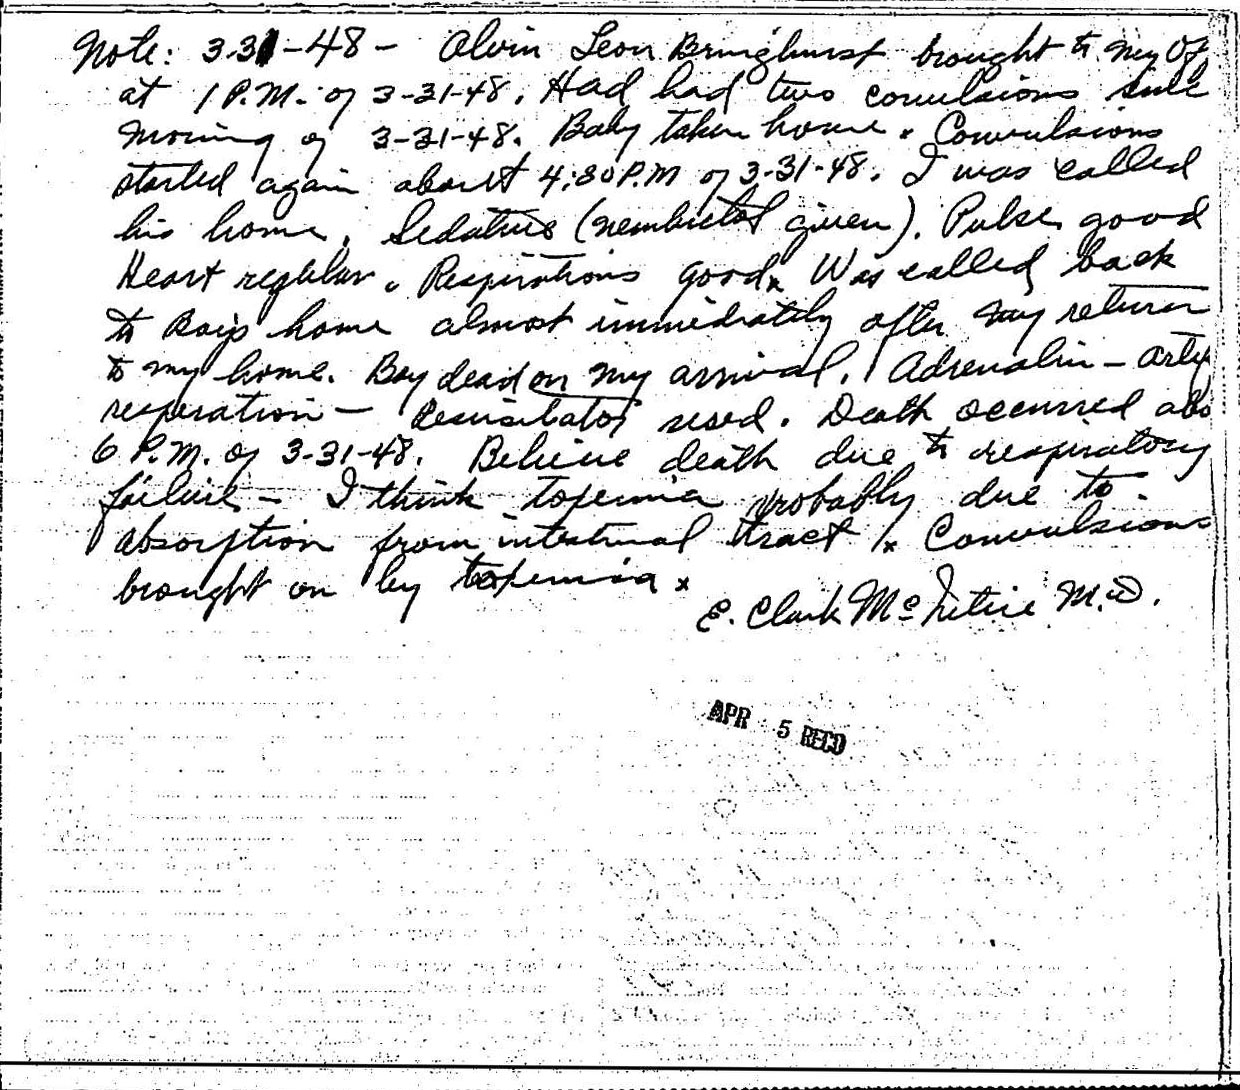 Note: 3-31-48 - Alvin Leon Bringhurst brought to my Of
at 1 P.M. of 3-31-48. Had had two convulsions since
morning of 3-31-48. Baby taken home. Convulsions
started again about 4:30 P.M of 3-31-48. I was called
his home. Sedative (nembutal given). Pulse good
Heart regular. Respirations good. Was called back
to Boys home almost immediately after my return
to my home. Boy dead on my arrival. Adrenalin - artif
resperation - Resusitator used. Death occurred abo
6 P.M. of 3-31-48. Believe death due to respiratory
failure - I think toxemia probably due to
absorption from intestinal tract. Convulsions
brought on by toxemia.
E. Clark McIntire M.D.
APR 5 RECD